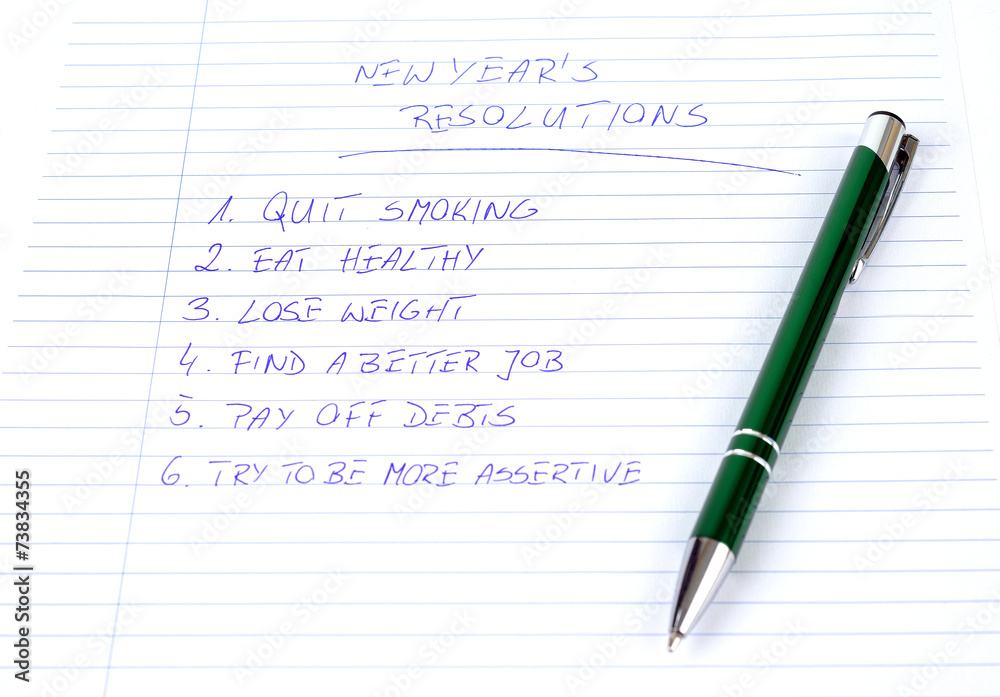 NEW YEAR'S
RESOLUTIONS
1. QUIT SMOKING
2. EAT HEALTHY
3. LOSE WEIGHT
4. FIND A BETTER JOB
5. PAY OFF DEBTS
6. TRY TO BE MORE ASSERTIVE
Adobe Stock | #73834355